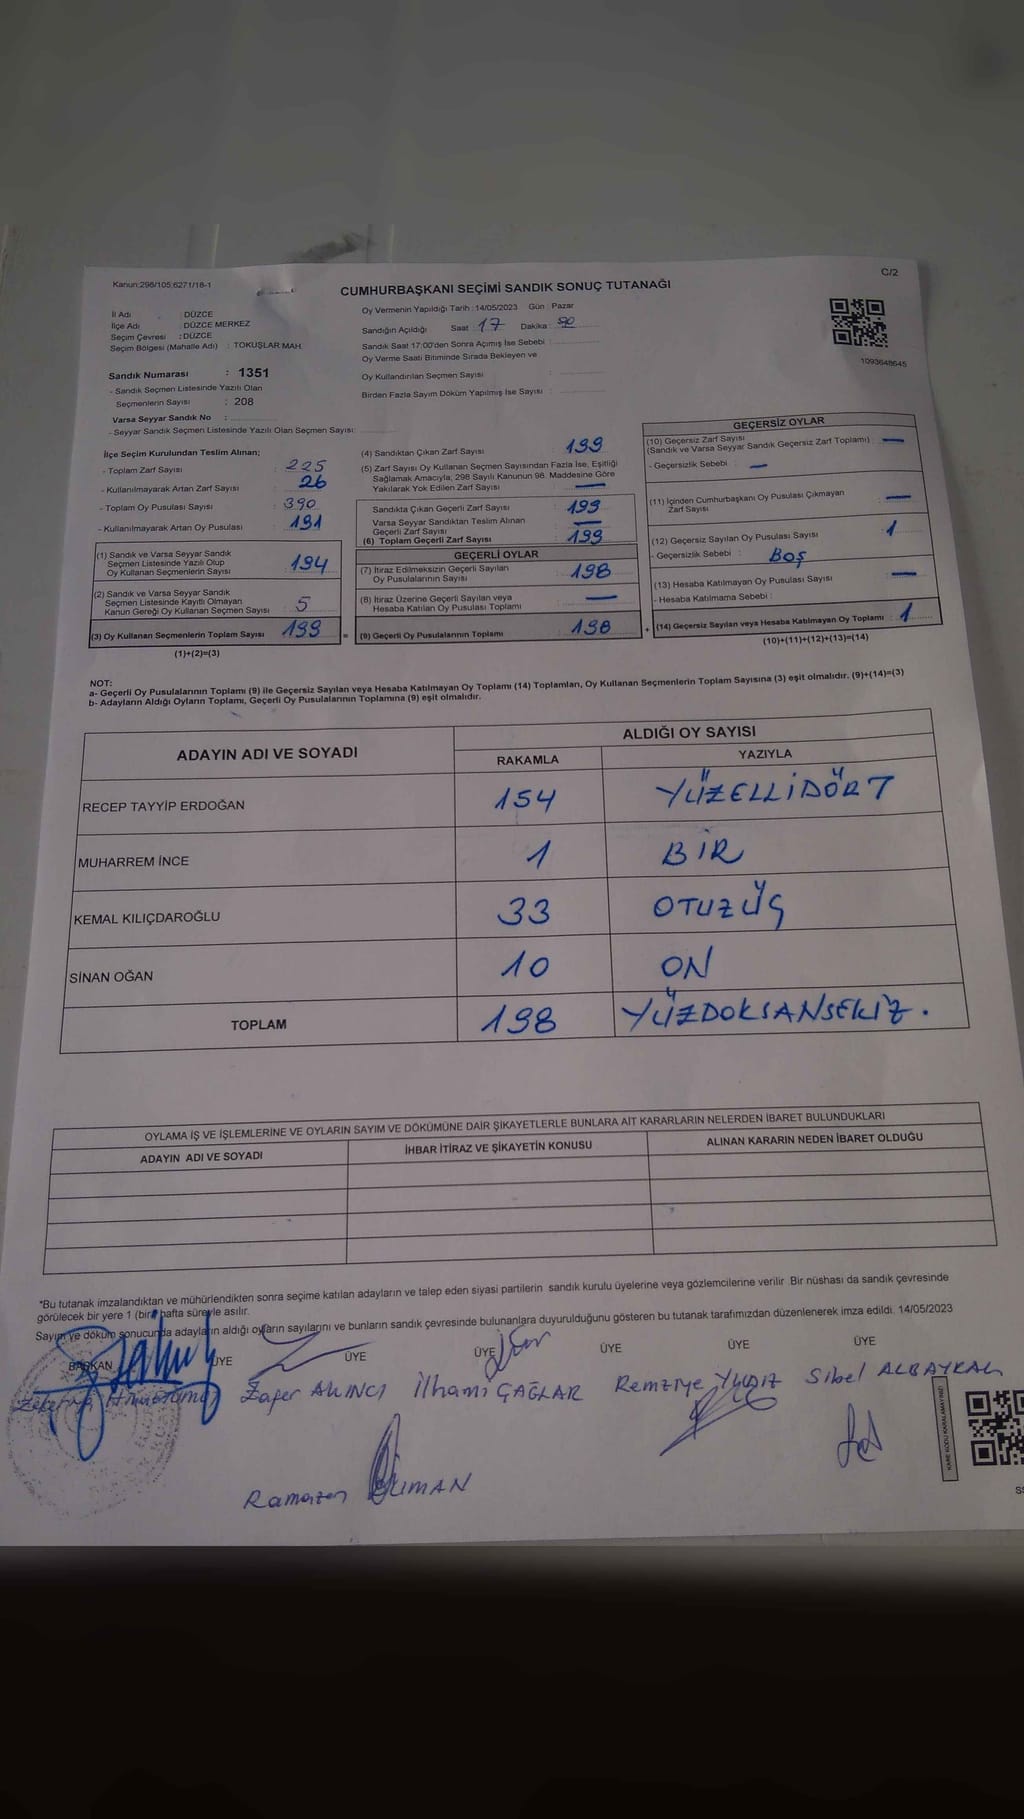 Kanun:298/105,6271/18-1
C/2
CUMHURBAŞKANI SEÇİMİ SANDIK SONUÇ TUTANAĞI
İl Adı : DÜZCE
İlçe Adı : DÜZCE MERKEZ
Seçim Çevresi : DÜZCE
Seçim Bölgesi (Mahalle Adı) : TOKUŞLAR MAH.
Sandık Numarası : 1351
- Sandık Seçmen Listesinde Yazılı Olan
Seçmenlerin Sayısı : 208
Varsa Seyyar Sandık No :
- Seyyar Sandık Seçmen Listesinde Yazılı Olan Seçmen Sayısı:
Oy Vermenin Yapıldığı Tarih : 14/05/2023 Gün : Pazar
Sandığın Açıldığı Saat : 17 Dakika :
Sandık Saat 17:00'den Sonra Açımış İse Sebebi :
Oy Verme Saati Bitiminde Sırada Bekleyen ve
Oy Kullandırılan Seçmen Sayısı :
Birden Fazla Sayım Döküm Yapılmış İse Sayısı :
1093648645
İlçe Seçim Kurulundan Teslim Alınan;
- Toplam Zarf Sayısı : 225
- Kullanılmayarak Artan Zarf Sayısı : 26
- Toplam Oy Pusulası Sayısı : 390
- Kullanılmayarak Artan Oy Pusulası : 191
(1) Sandık ve Varsa Seyyar Sandık
Seçmen Listesinde Yazılı Olup
Oy Kullanan Seçmenlerin Sayısı : 194
(2) Sandık ve Varsa Seyyar Sandık
Seçmen Listesinde Kayıtlı Olmayan
Kanun Gereği Oy Kullanan Seçmen Sayısı : 5
(3) Oy Kullanan Seçmenlerin Toplam Sayısı : 199 =
(1)+(2)=(3)
(4) Sandıktan Çıkan Zarf Sayısı : 199
(5) Zarf Sayısı Oy Kullanan Seçmen Sayısından Fazla İse, Eşitliği
Sağlamak Amacıyla, 298 Sayılı Kanunun 98. Maddesine Göre
Yakılarak Yok Edilen Zarf Sayısı : —
Sandıkta Çıkan Geçerli Zarf Sayısı : 199
Varsa Seyyar Sandıktan Teslim Alınan
Geçerli Zarf Sayısı : —
(6) Toplam Geçerli Zarf Sayısı : 199
GEÇERLİ OYLAR
(7) İtiraz Edilmeksizin Geçerli Sayılan
Oy Pusulalarının Sayısı : 198
(8) İtiraz Üzerine Geçerli Sayılan veya
Hesaba Katılan Oy Pusulası Toplamı : —
(9) Geçerli Oy Pusulalarının Toplamı : 198 +
GEÇERSİZ OYLAR
(10) Geçersiz Zarf Sayısı
(Sandık ve Varsa Seyyar Sandık Geçersiz Zarf Toplamı) : —
- Geçersizlik Sebebi : —
(11) İçinden Cumhurbaşkanı Oy Pusulası Çıkmayan
Zarf Sayısı : —
(12) Geçersiz Sayılan Oy Pusulası Sayısı : 1
- Geçersizlik Sebebi : BOŞ
(13) Hesaba Katılmayan Oy Pusulası Sayısı : —
- Hesaba Katılmama Sebebi :
(14) Geçersiz Sayılan veya Hesaba Katılmayan Oy Toplamı : 1
(10)+(11)+(12)+(13)=(14)
NOT:
a- Geçerli Oy Pusulalarının Toplamı (9) ile Geçersiz Sayılan veya Hesaba Katılmayan Oy Toplamı (14) Toplamları, Oy Kullanan Seçmenlerin Toplam Sayısına (3) eşit olmalıdır. (9)+(14)=(3)
b- Adayların Aldığı Oyların Toplamı, Geçerli Oy Pusulalarının Toplamına (9) eşit olmalıdır.
ADAYIN ADI VE SOYADI
ALDIĞI OY SAYISI
RAKAMLA YAZIYLA
RECEP TAYYİP ERDOĞAN 154 YÜZELLİDÖRT
MUHARREM İNCE 1 BİR
KEMAL KILIÇDAROĞLU 33 OTUZÜÇ
SİNAN OĞAN 10 ON
TOPLAM 198 YÜZDOKSANSEKİZ.
OYLAMA İŞ VE İŞLEMLERİNE VE OYLARIN SAYIM VE DÖKÜMÜNE DAİR ŞİKAYETLERLE BUNLARA AİT KARARLARIN NELERDEN İBARET BULUNDUKLARI
ADAYIN ADI VE SOYADI İHBAR İTİRAZ VE ŞİKAYETİN KONUSU ALINAN KARARIN NEDEN İBARET OLDUĞU
*Bu tutanak imzalandıktan ve mühürlendikten sonra seçime katılan adayların ve talep eden siyasi partilerin sandık kurulu üyelerine veya gözlemcilerine verilir. Bir nüshası da sandık çevresinde
görülecek bir yere 1 (bir) hafta süreyle asılır.
Sayım ve döküm sonucunda adayların aldığı oyların sayılarını ve bunların sandık çevresinde bulunanlara duyurulduğunu gösteren bu tutanak tarafımızdan düzenlenerek imza edildi. 14/05/2023
BAŞKAN ÜYE ÜYE ÜYE ÜYE ÜYE ÜYE
Zafer AKINCI İlhami ÇAĞLAR Remziye YILDIZ Sibel ALBAYRAK
Ramazan
KARE KODU KARALAMAYINIZ!